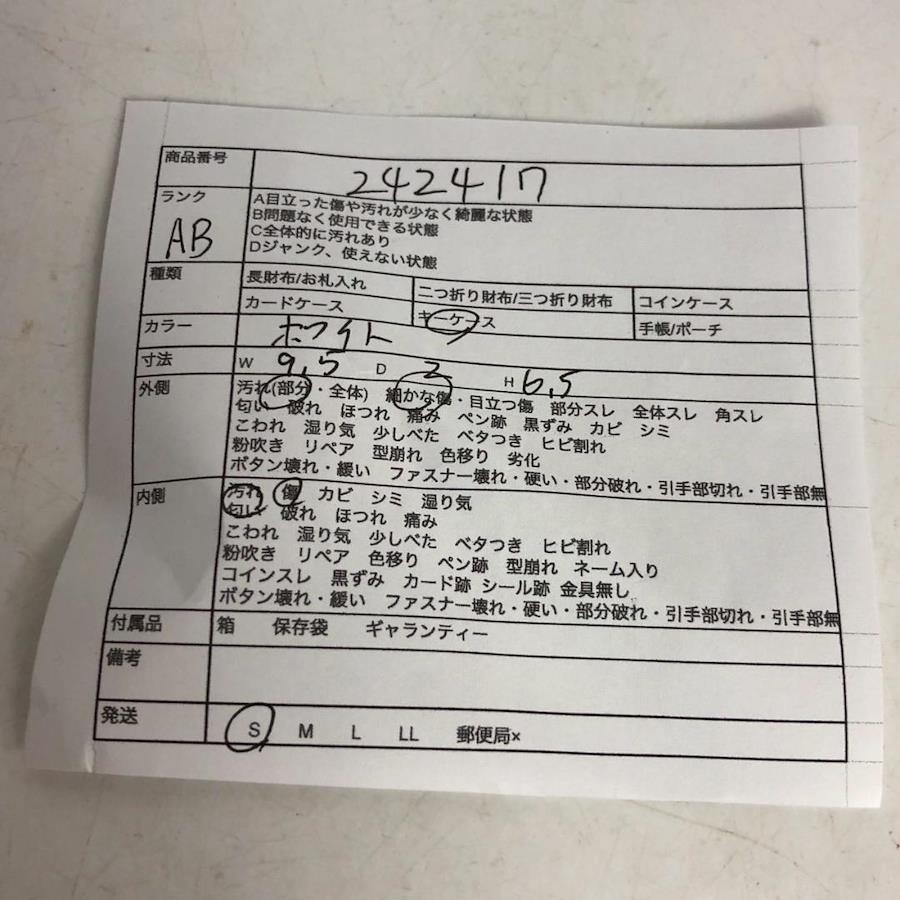 商品番号 242417
ランク AB
A目立った傷や汚れが少なく綺麗な状態
B問題なく使用できる状態
C全体的に汚れあり
Dジャンク、使えない状態
種類 長財布/お札入れ 二つ折り財布/三つ折り財布 コインケース
カードケース キーケース 手帳/ポーチ
カラー ホワイト
寸法 W 9,5 D 2 H 6,5
外側 汚れ(部分・全体) 細かな傷・目立つ傷 部分スレ 全体スレ 角スレ
匂い 破れ ほつれ 痛み ペン跡 黒ずみ カビ シミ
こわれ 湿り気 少しべた ベタつき ヒビ割れ
粉吹き リペア 型崩れ 色移り 劣化
ボタン壊れ・緩い ファスナー壊れ・硬い・部分破れ・引手部切れ・引手部無
内側 汚れ 傷 カビ シミ 湿り気
匂い 破れ ほつれ 痛み
こわれ 湿り気 少しべた ベタつき ヒビ割れ
粉吹き リペア 色移り ペン跡 型崩れ ネーム入り
コインスレ 黒ずみ カード跡 シール跡 金具無し
ボタン壊れ・緩い ファスナー壊れ・硬い・部分破れ・引手部切れ・引手部無
付属品 箱 保存袋 ギャランティー
備考
発送 S M L LL 郵便局×